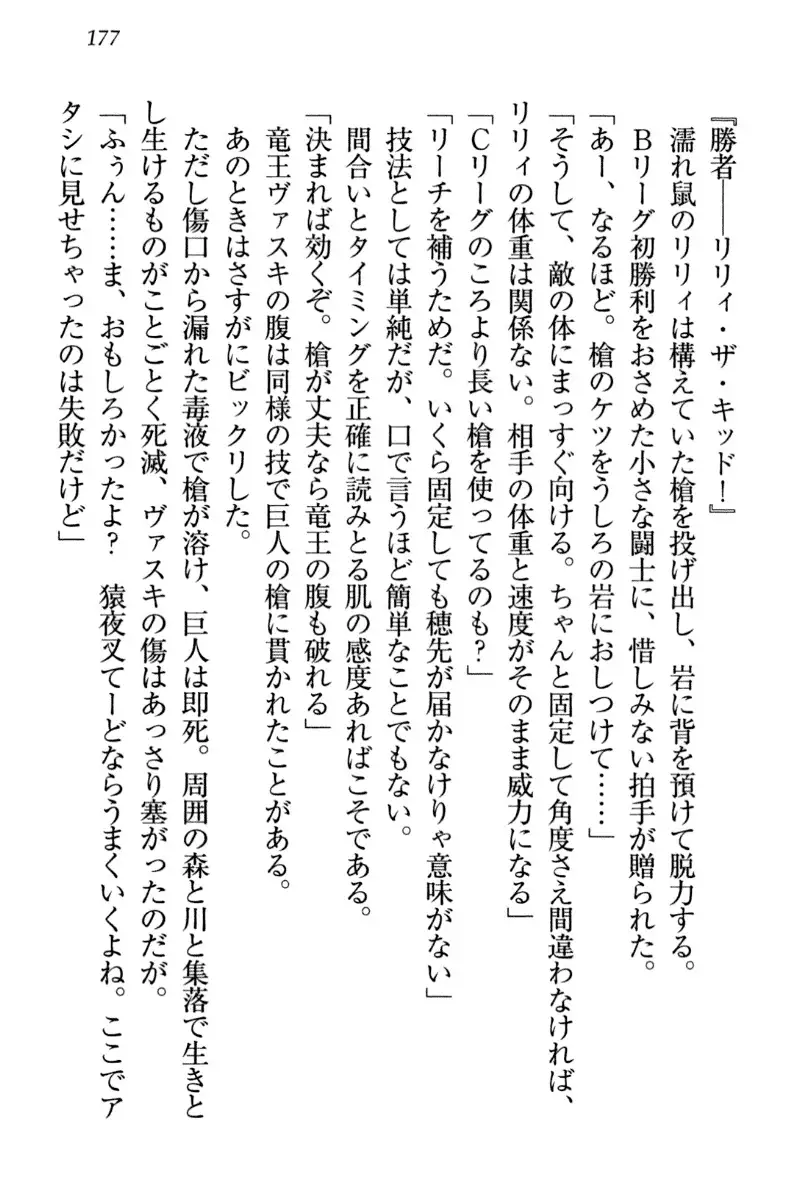 177
『勝者――リリィ・ザ・キッド！』
濡れ鼠のリリィは構えていた槍を投げ出し、岩に背を預けて脱力する。
Ｂリーグ初勝利をおさめた小さな闘士に、惜しみない拍手が贈られた。
「あー、なるほど。槍のケツをうしろの岩におしつけて……」
「そうして、敵の体にまっすぐ向ける。ちゃんと固定して角度さえ間違わなければ、
リリィの体重は関係ない。相手の体重と速度がそのまま威力になる」
「Ｃリーグのころより長い槍を使ってるのも？」
「リーチを補うためだ。いくら固定しても穂先が届かなけりゃ意味がない」
技法としては単純だが、口で言うほど簡単なことでもない。
間合いとタイミングを正確に読みとる肌の感度あればこそである。
「決まれば効くぞ。槍が丈夫なら竜王の腹も破れる」
竜王ヴァスキの腹は同様の技で巨人の槍に貫かれたことがある。
あのときはさすがにビックリした。
ただし傷口から漏れた毒液で槍が溶け、巨人は即死。周囲の森と川と集落で生きと
し生けるものがことごとく死滅、ヴァスキの傷はあっさり塞がったのだが。
「ふぅん……ま、おもしろかったよ？　猿夜叉てーどならうまくいくよね。ここでア
タシに見せちゃったのは失敗だけど」